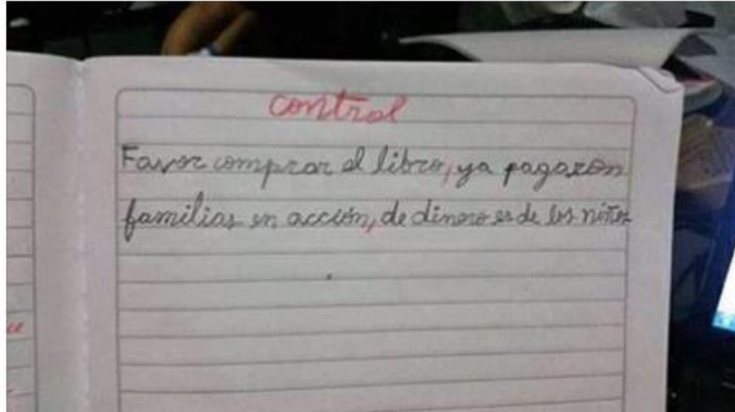 control
Favor comprar el libro, ya pagaron
familias en acción, de dinero es de los niños